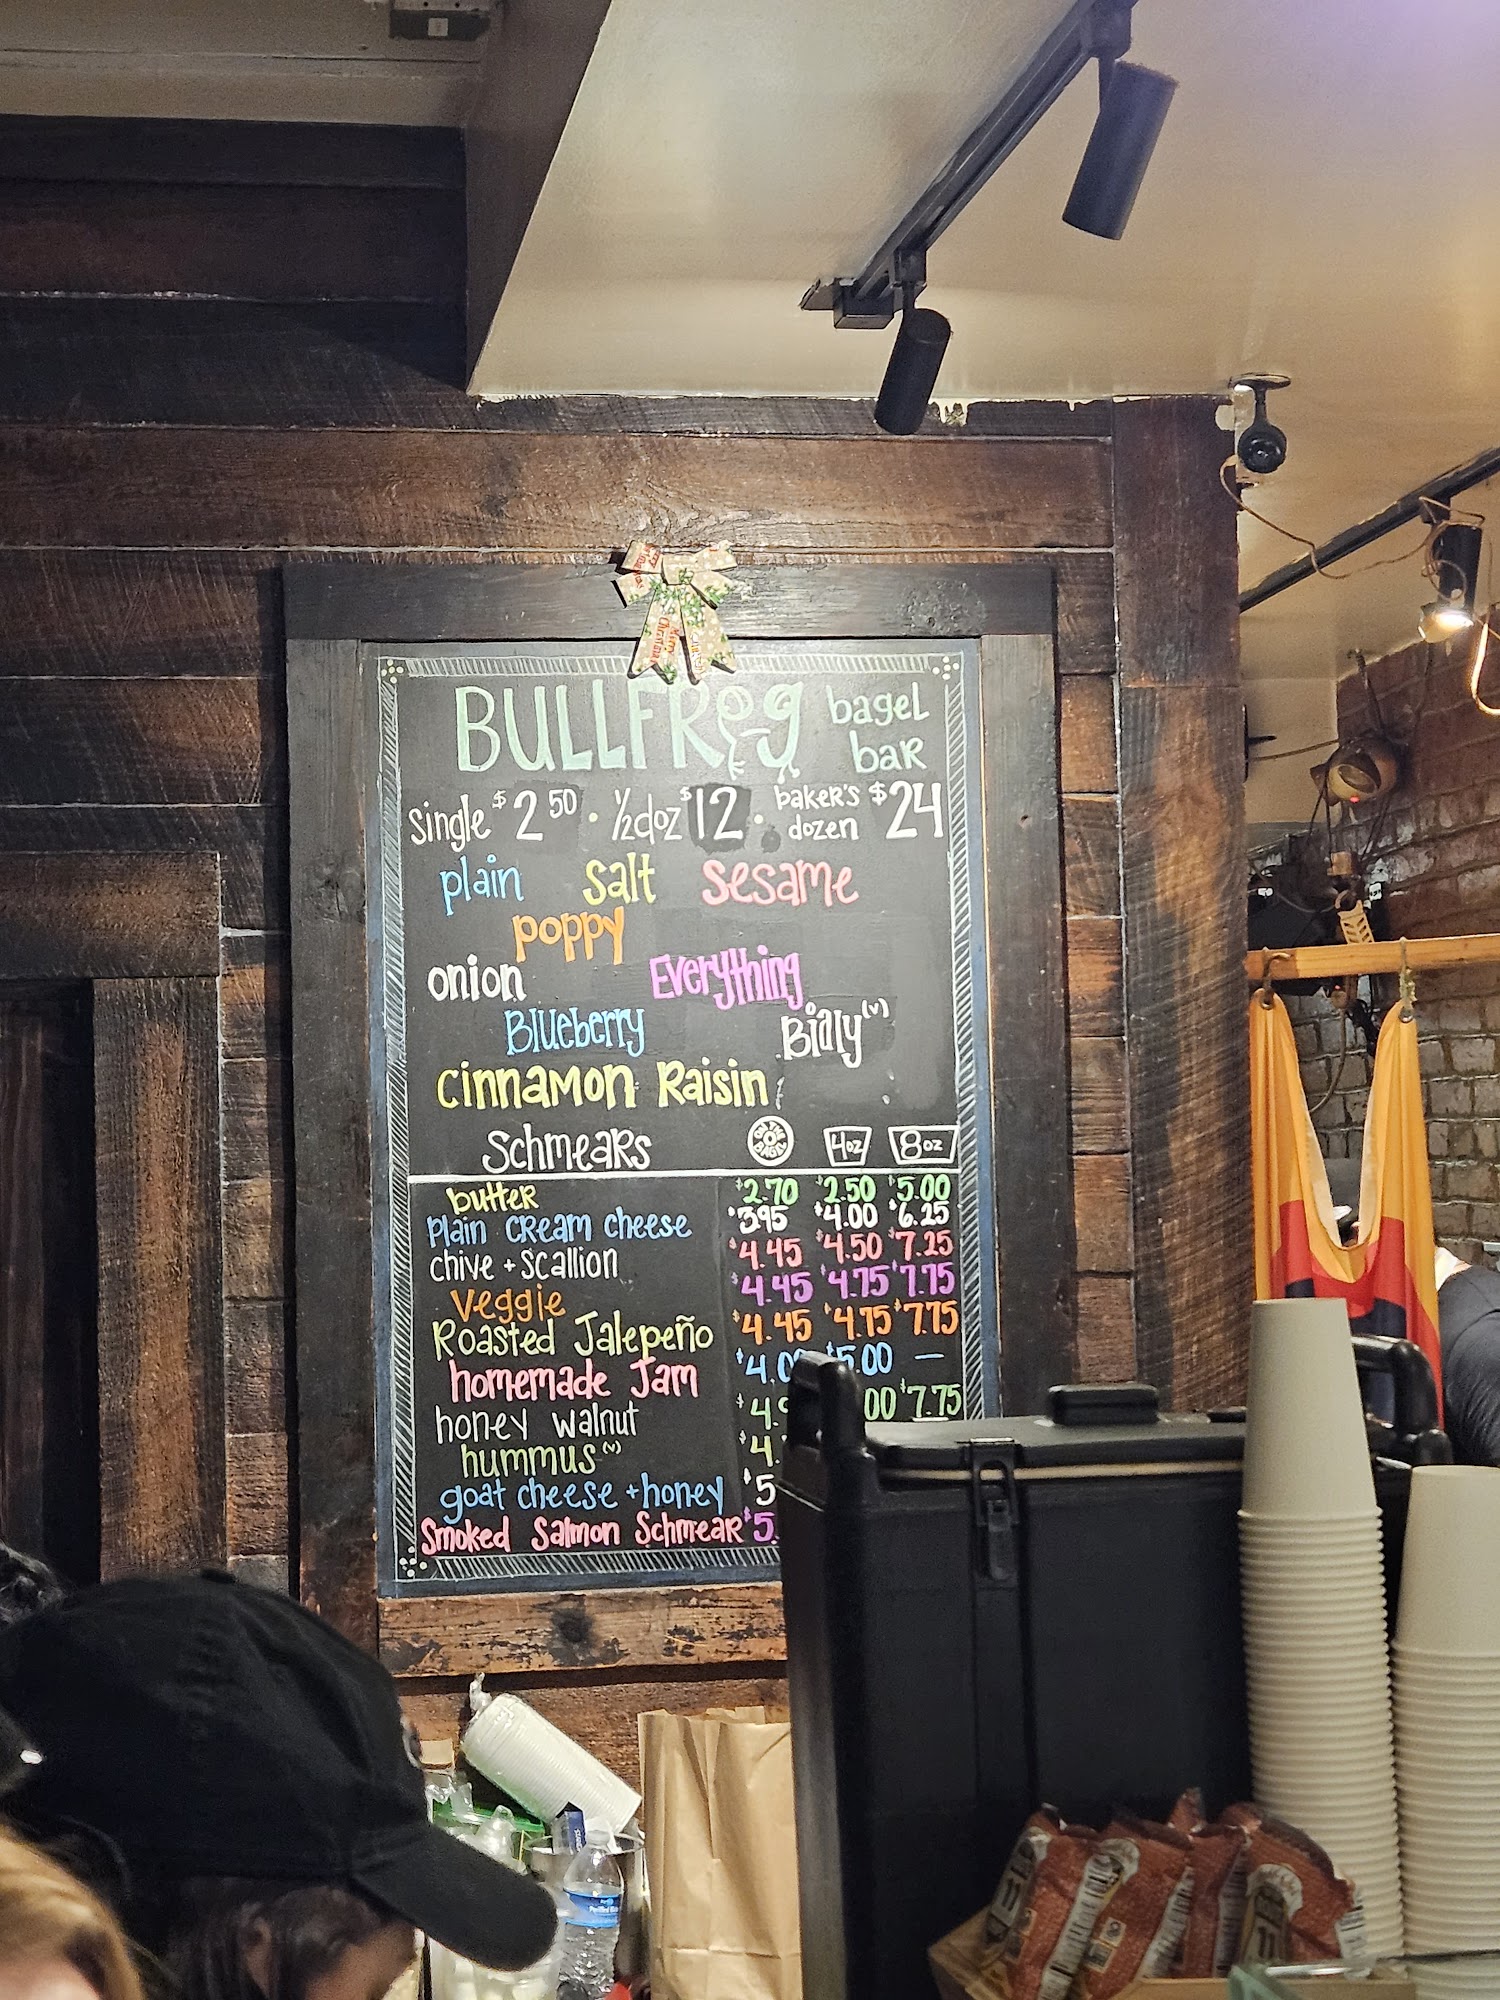 BULLFROg bagel bar
single $2.50 · 1/2doz $12 · baker's dozen $24
plain salt sesame
poppy
onion Everything
Blueberry Bialy (v)
cinnamon Raisin
Schmears ON THE BAGEL 4oz 8oz
butter $2.70 $2.50 $5.00
plain cream cheese $3.95 $4.00 $6.25
chive + scallion $4.45 $4.50 $7.25
veggie $4.45 $4.75 $7.75
Roasted Jalepeño $4.45 $4.75 $7.75
homemade Jam $4.00 $5.00 —
honey walnut $4. 00 $7.75
hummus (v) $4.
goat cheese + honey $5
Smoked Salmon Schmear $5.